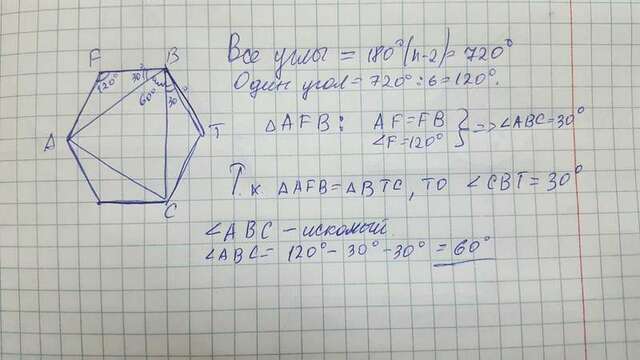 F
B
120°
30°
60°
30°
A
T
C
Все углы = 180°(n-2) = 720°
Один угол = 720° : 6 = 120°.
△AFB : AF = FB
∠F = 120° } => ∠ABC = 30°
Т.к △AFB = △BTC, то ∠CBT = 30°
∠ABC – искомый.
∠ABC = 120° - 30° - 30° = 60°